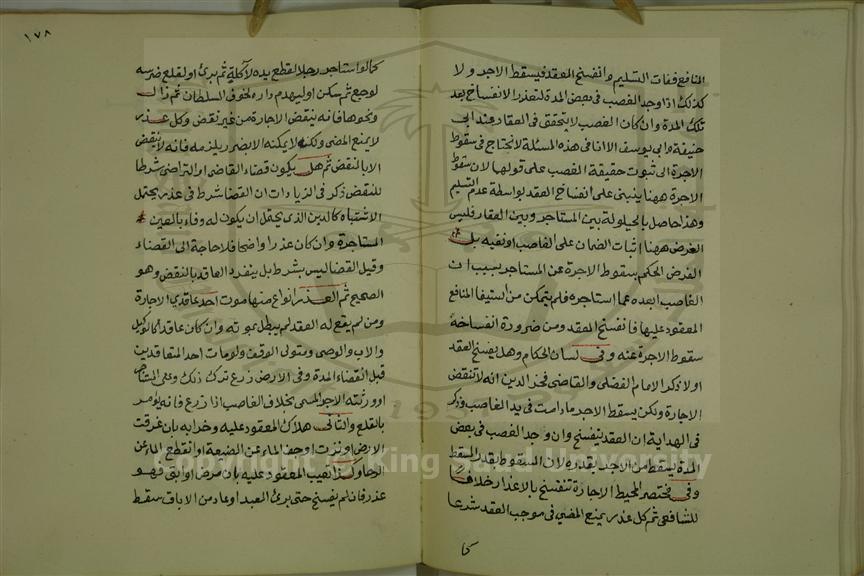 المنافع ففات التسليم وانفسخ العقد فيسقط الاجر ولا
كذلك اذا وجد الغصب فى بعض المدة لتعذر الانفساخ بعد
تلك المدة وان كان الغصب لا يتحقق فى العقار عند ابى
حنيفة وابى يوسف الا انا فى هذه المسئلة لا نحتاج فى سقوط
الاجرة الى ثبوت حقيقة الغصب على قولهما لان سقوط
الاجرة ههنا ينبنى على انفساخ العقد بواسطة عدم التسليم
وهذا حاصل بالحيلولة بين المستاجر وبين العقار فليس
الغرض ههنا اثبات الضمان على الغاصب او نفيه بل
الغرض الحكم بسقوط الاجرة عن المستاجر بسبب ان
الغاصب ابعده عما استاجره فلم يتمكن من استيفا المنافع
المعقود عليها فانفسخ العقد ومن ضرورة انفساخه
سقوط الاجرة عنه وفى لسان الحكام وهل ينفسخ العقد
اولا ذكر الامام الفضلى والقاضى فخر الدين انه لا تنقض
الاجارة ولكن يسقط الاجر مادامت فى يد الغاصب وذكر
فى الهداية ان العقد ينفسخ وان وجد الغصب فى بعض
المدة يسقط من الاجر بقدره لان السقوط بقدر المسقط
وفى مختصر المحيط الاجارة تنفسخ بالاعذار خلافا
للشافعى ثم كل عذر يمنع المضى فى موجب العقد شرعا
كما
١٧٨
كما لو استاجر رجلا لقطع يده لآكلة ثم برئ او لقلع ضرسه
لوجع ثم سكن او ليهدم داره لخوف السلطان ثم زال
ونحوها فانه ينتقض الاجارة من غير نقض وكل عذر
لا يمنع المضى ولكنه لا يمكنه الا بضرر يلزمه فانه لا ينتقض
الا بالنقض ثم هل يكون قضاء القاضى او التراضى شرطا
للنقض ذكر فى الزيادات ان القضا شرط فى عذر يحتمل
الاشتباه كالدين الذى يحتمل ان يكون له وفاء بالعين
المستاجرة وان كان عذرا واضحا فلا حاجة الى القضاء
وقيل القضا ليس بشرط بل ينفرد العاقد بالنقض وهو
الصحيح ثم العذر انواع منها موت احد عاقدي الاجارة
ومن لم يقع له العقد لم يبطل بموته وان كان عاقدا كالوكيل
والاب والوصى ومتولى الوقف ولو مات احد المتعاقدين
قبل انقضاء المدة وفى الارض زرع ترك ذلك وعلى المستاجر
او ورثته الاجر المسمى بخلاف الغاصب اذا زرع فانه يؤمر
بالقلع والثانى هلاك المعقود عليه وخرابه بان غرقت
الارض او نزت او جف الماء عن الضيعة او انقطع الماء عن
الرحا وكذا تعيب المعقود عليه بان مرض او ابق فهو
عذر فان لم يفسخ حتى برئ العبد او عاد من الاباق سقط
Copyright © King Saud University